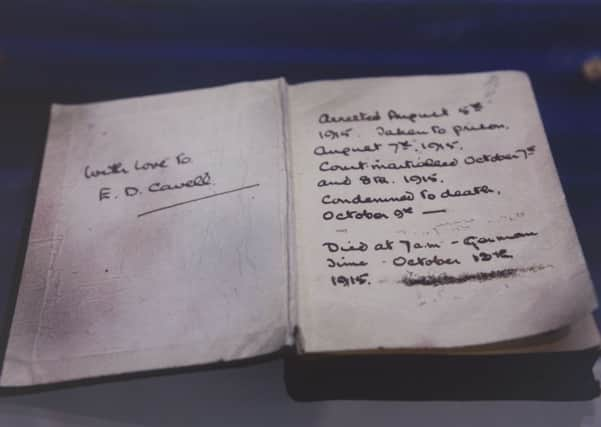 With love to
E. D. Cavell.
Arrested August 5th
1915. Taken to prison,
August 7th, 1915.
Court-martialled October 7th
and 8th. 1915.
Condemned to death,
October 9th —
Died at 7 a.m. - German
Time - October 12th
1915.